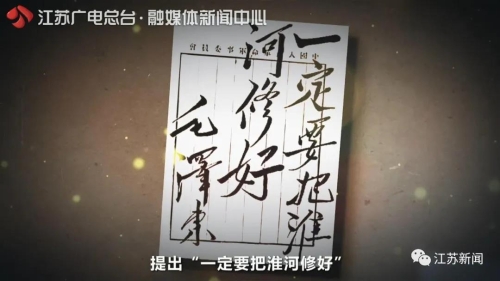 江苏广电总台·融媒体新闻中心
一定要把淮
河修好
毛澤东
提出“一定要把淮河修好”
江苏新闻